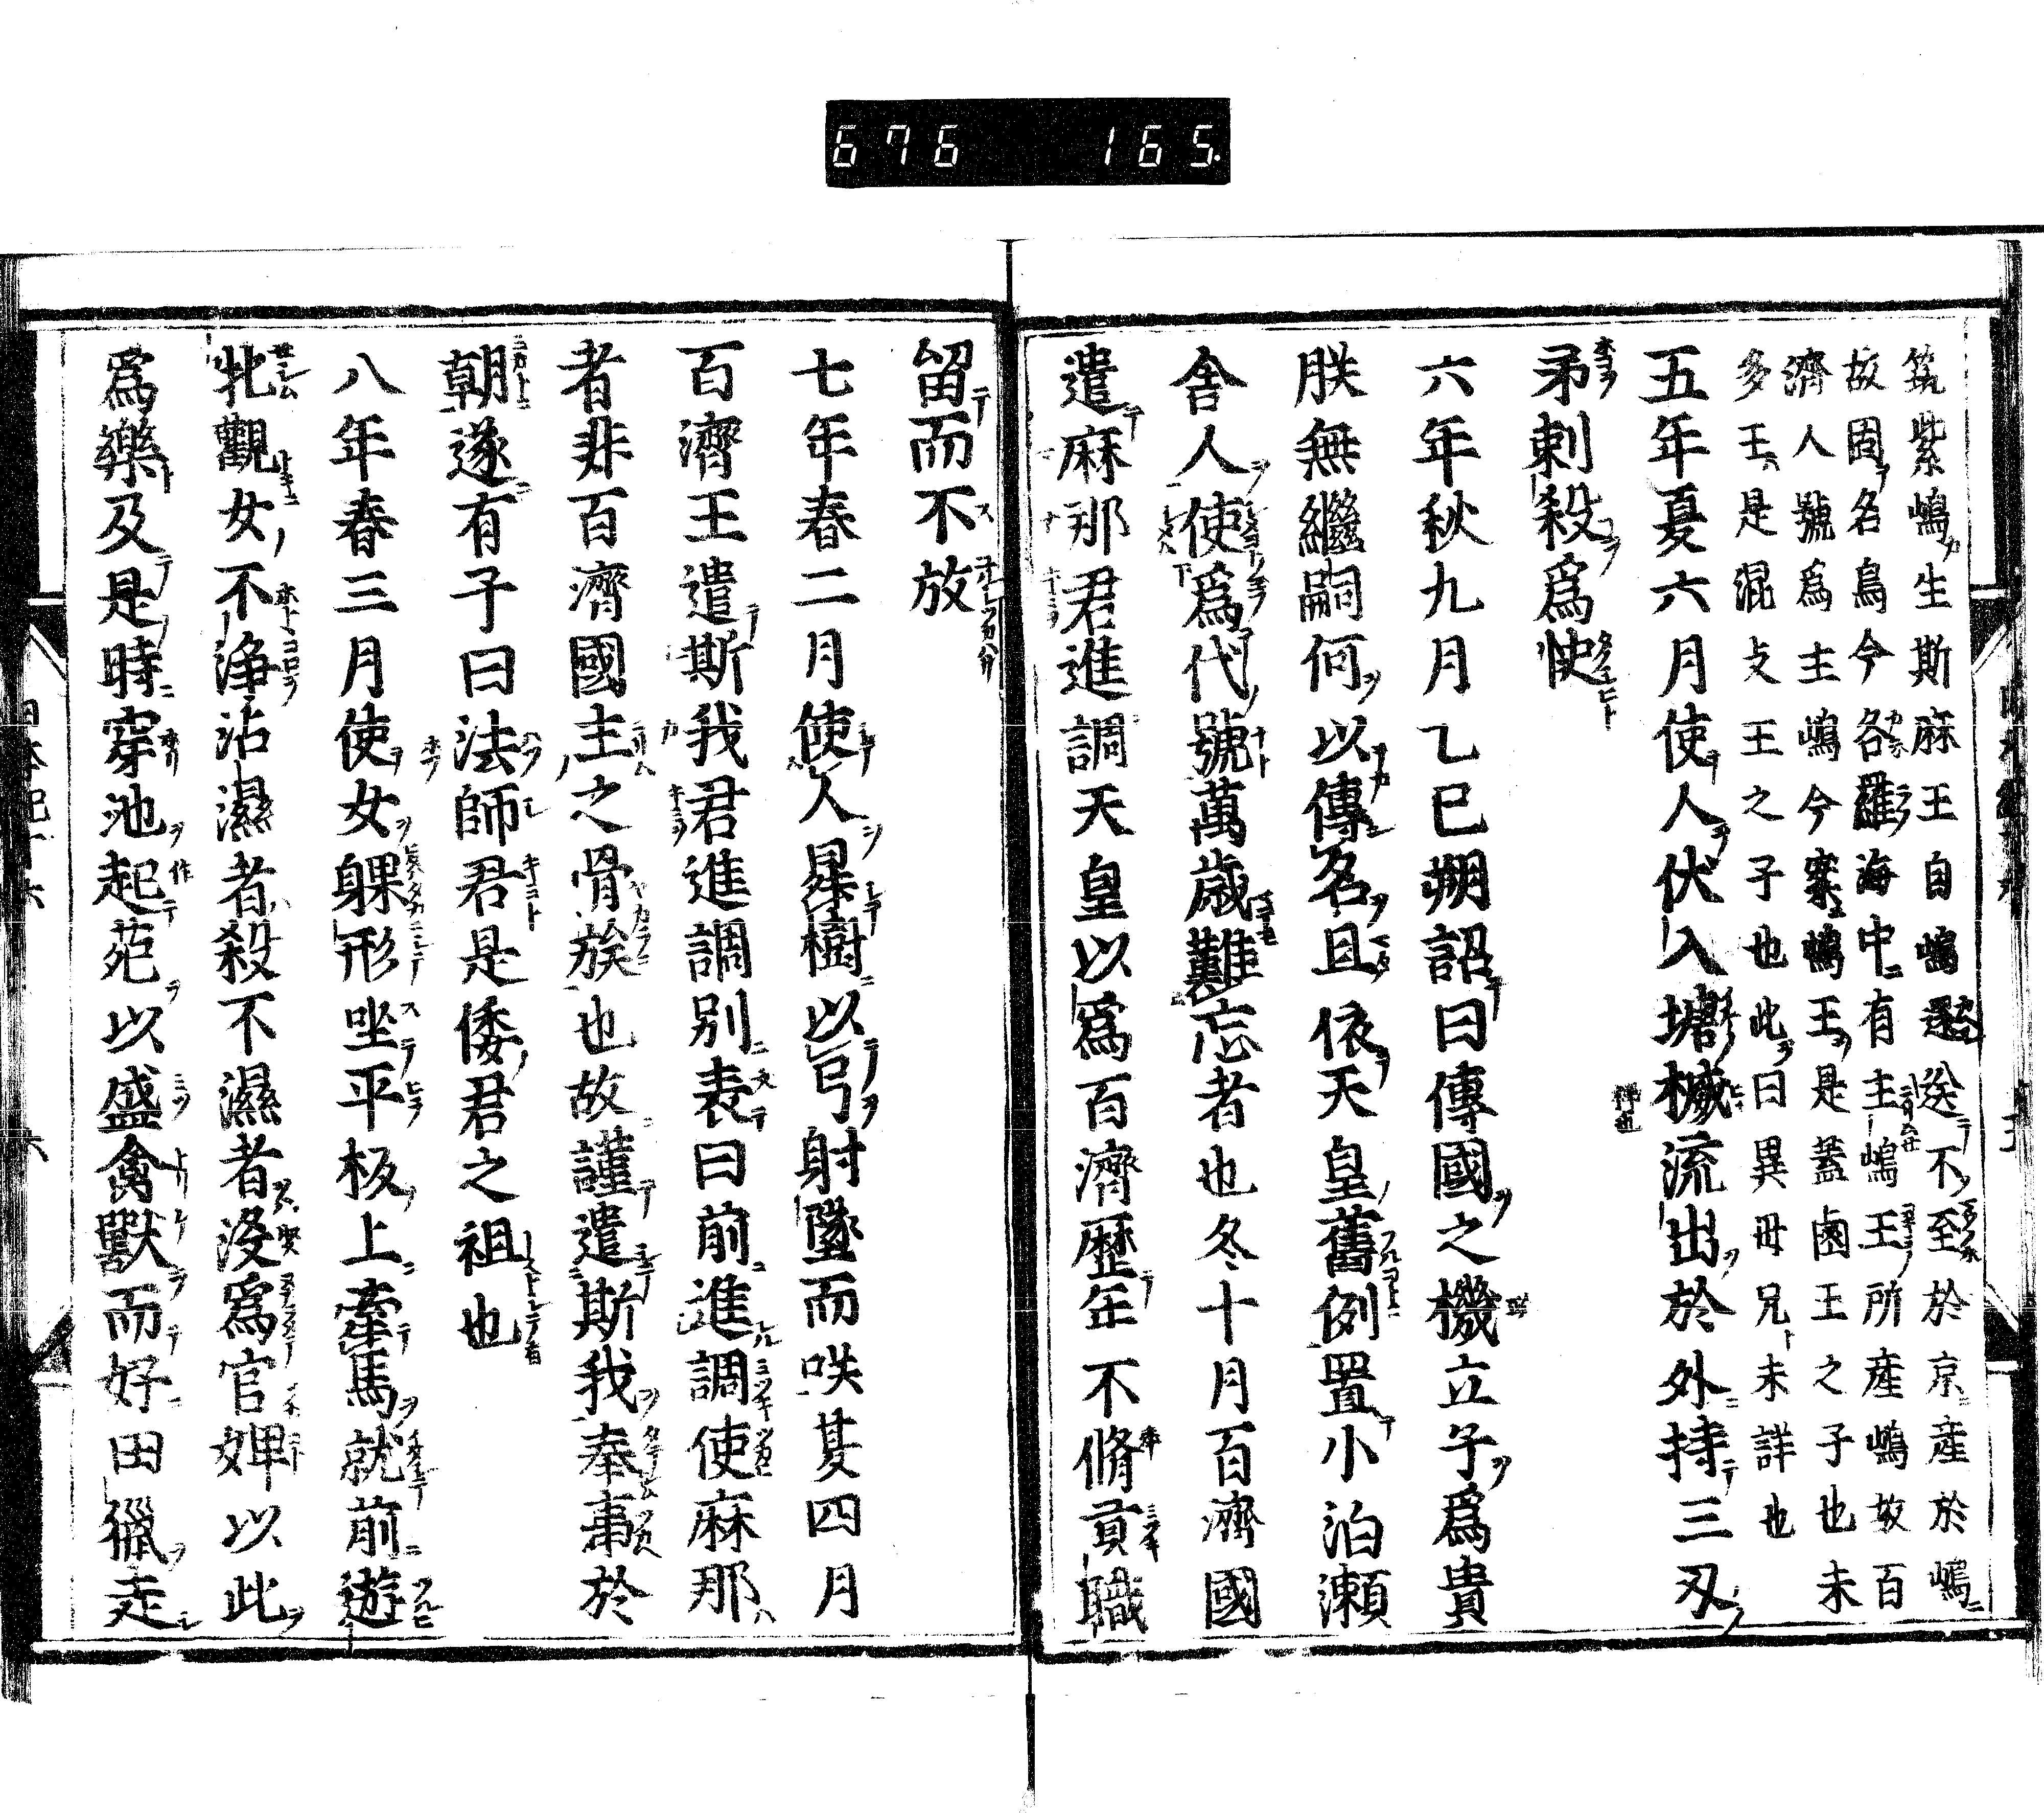 676 165.
筑紫嶋生斯麻王自嶋還送不至於京産於嶋
故因名焉今各羅海中有主嶋王所産嶋故百
濟人號爲主嶋今案嶋王是蓋鹵王之子也末
多王是混攴王之子也此曰異母兄未詳也
五年夏六月使人伏入塘楲流出於外持三刃
矛刺殺爲快
六年秋九月乙巳朔詔曰傳國之機立子爲貴
朕無繼嗣何以傳名且依天皇舊例置小泊瀬
舎人使爲代號萬歳難忘者也冬十月百濟國
遣麻那君進調天皇以爲百濟歴年不脩貢職
留而不放
七年春二月使人昇樹以弓射墜而咲其四月
百濟王遣斯我君進調別表曰前進調使麻那
者非百濟國主之骨族也故謹遣斯我奉事於
朝遂有子曰法師君是倭君之祖也
八年春三月使女躶形坐平板上牽馬就前遊
牝觀女不浄沾濕者殺不濕者没爲官婢以此
爲樂及是時穿池起苑以盛禽獸而好田獵走